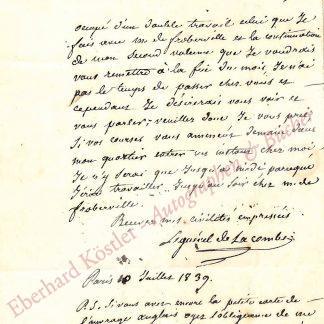 occupé d'un double travail celui que Je
fais avec mr de froberville et la continuation
de mon second volume que Je voudrais
vous remettre à la fin du mois Je n'ai
pas le temps de passer chez vous et
cependant Je désirerais vous voir et
vous parler, veuillez donc Je vous prie
Si vos courses vous amenent demain dans
mon quartier entrer un instant chez moi
Je n'y serai que jusqu'à midi parceque
J'irai travailler jusqu'au soir chez m. de
froberville.
Recevez mes civilités empressées
Leguével de Lacombe
Paris 10 Juillet 1839.
P.S. Si vous avez encore la petite carte de
l'ouvrage anglais ayez l'obligeance de me
Eberhard Köstler - Autographen & Bücher